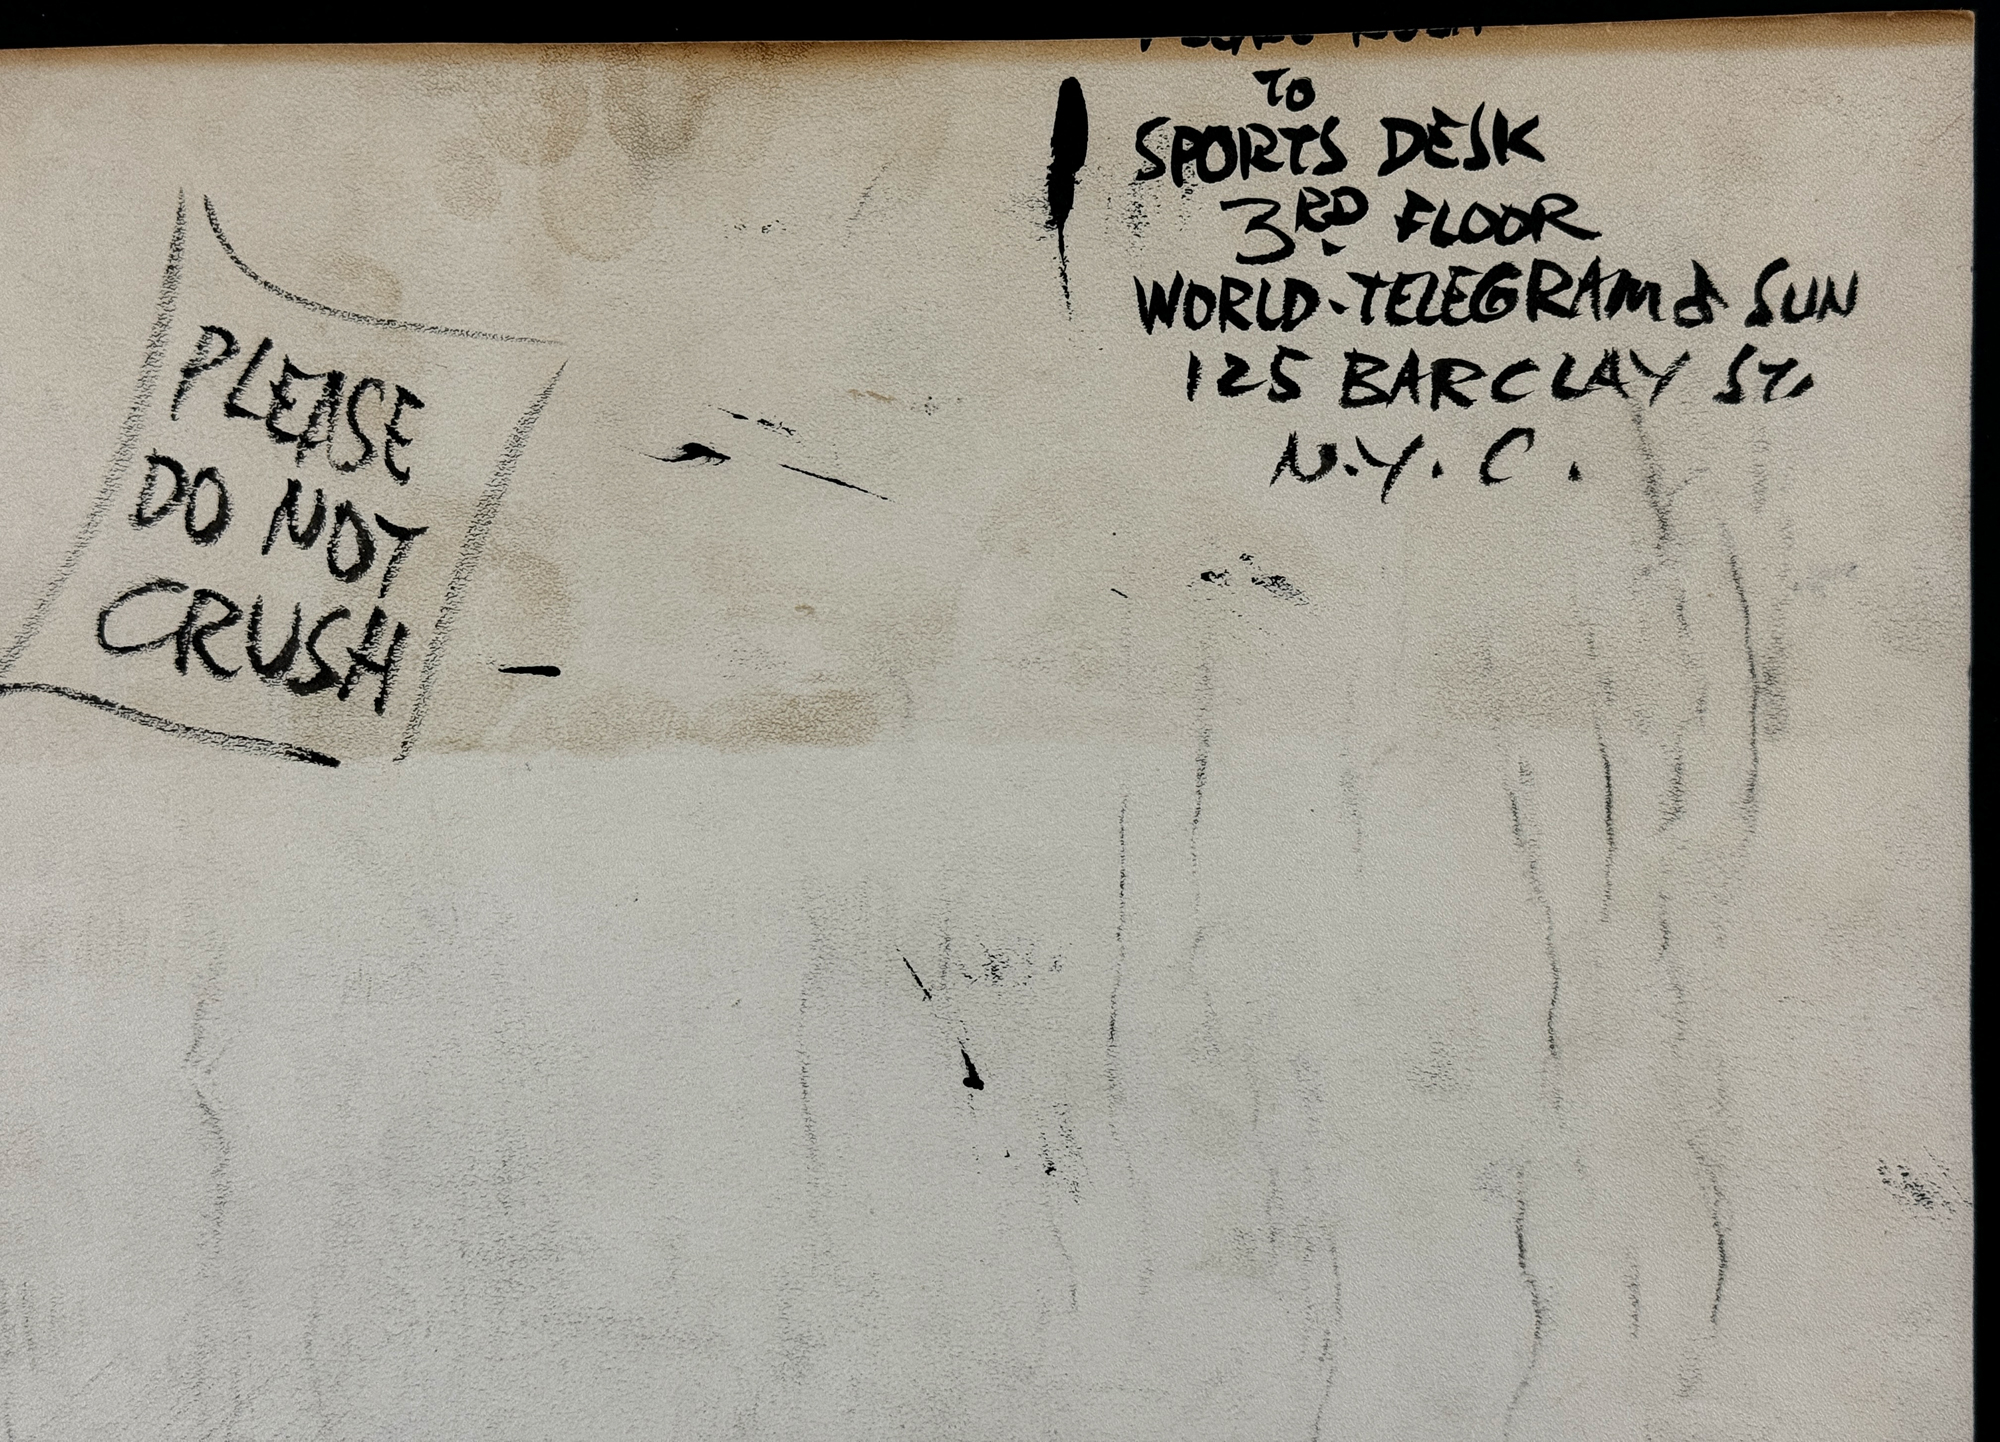 PLEASE
DO NOT
CRUSH
TO
SPORTS DESK
3RD. FLOOR
WORLD-TELEGRAM & SUN
125 BARCLAY ST.
N.Y.C.